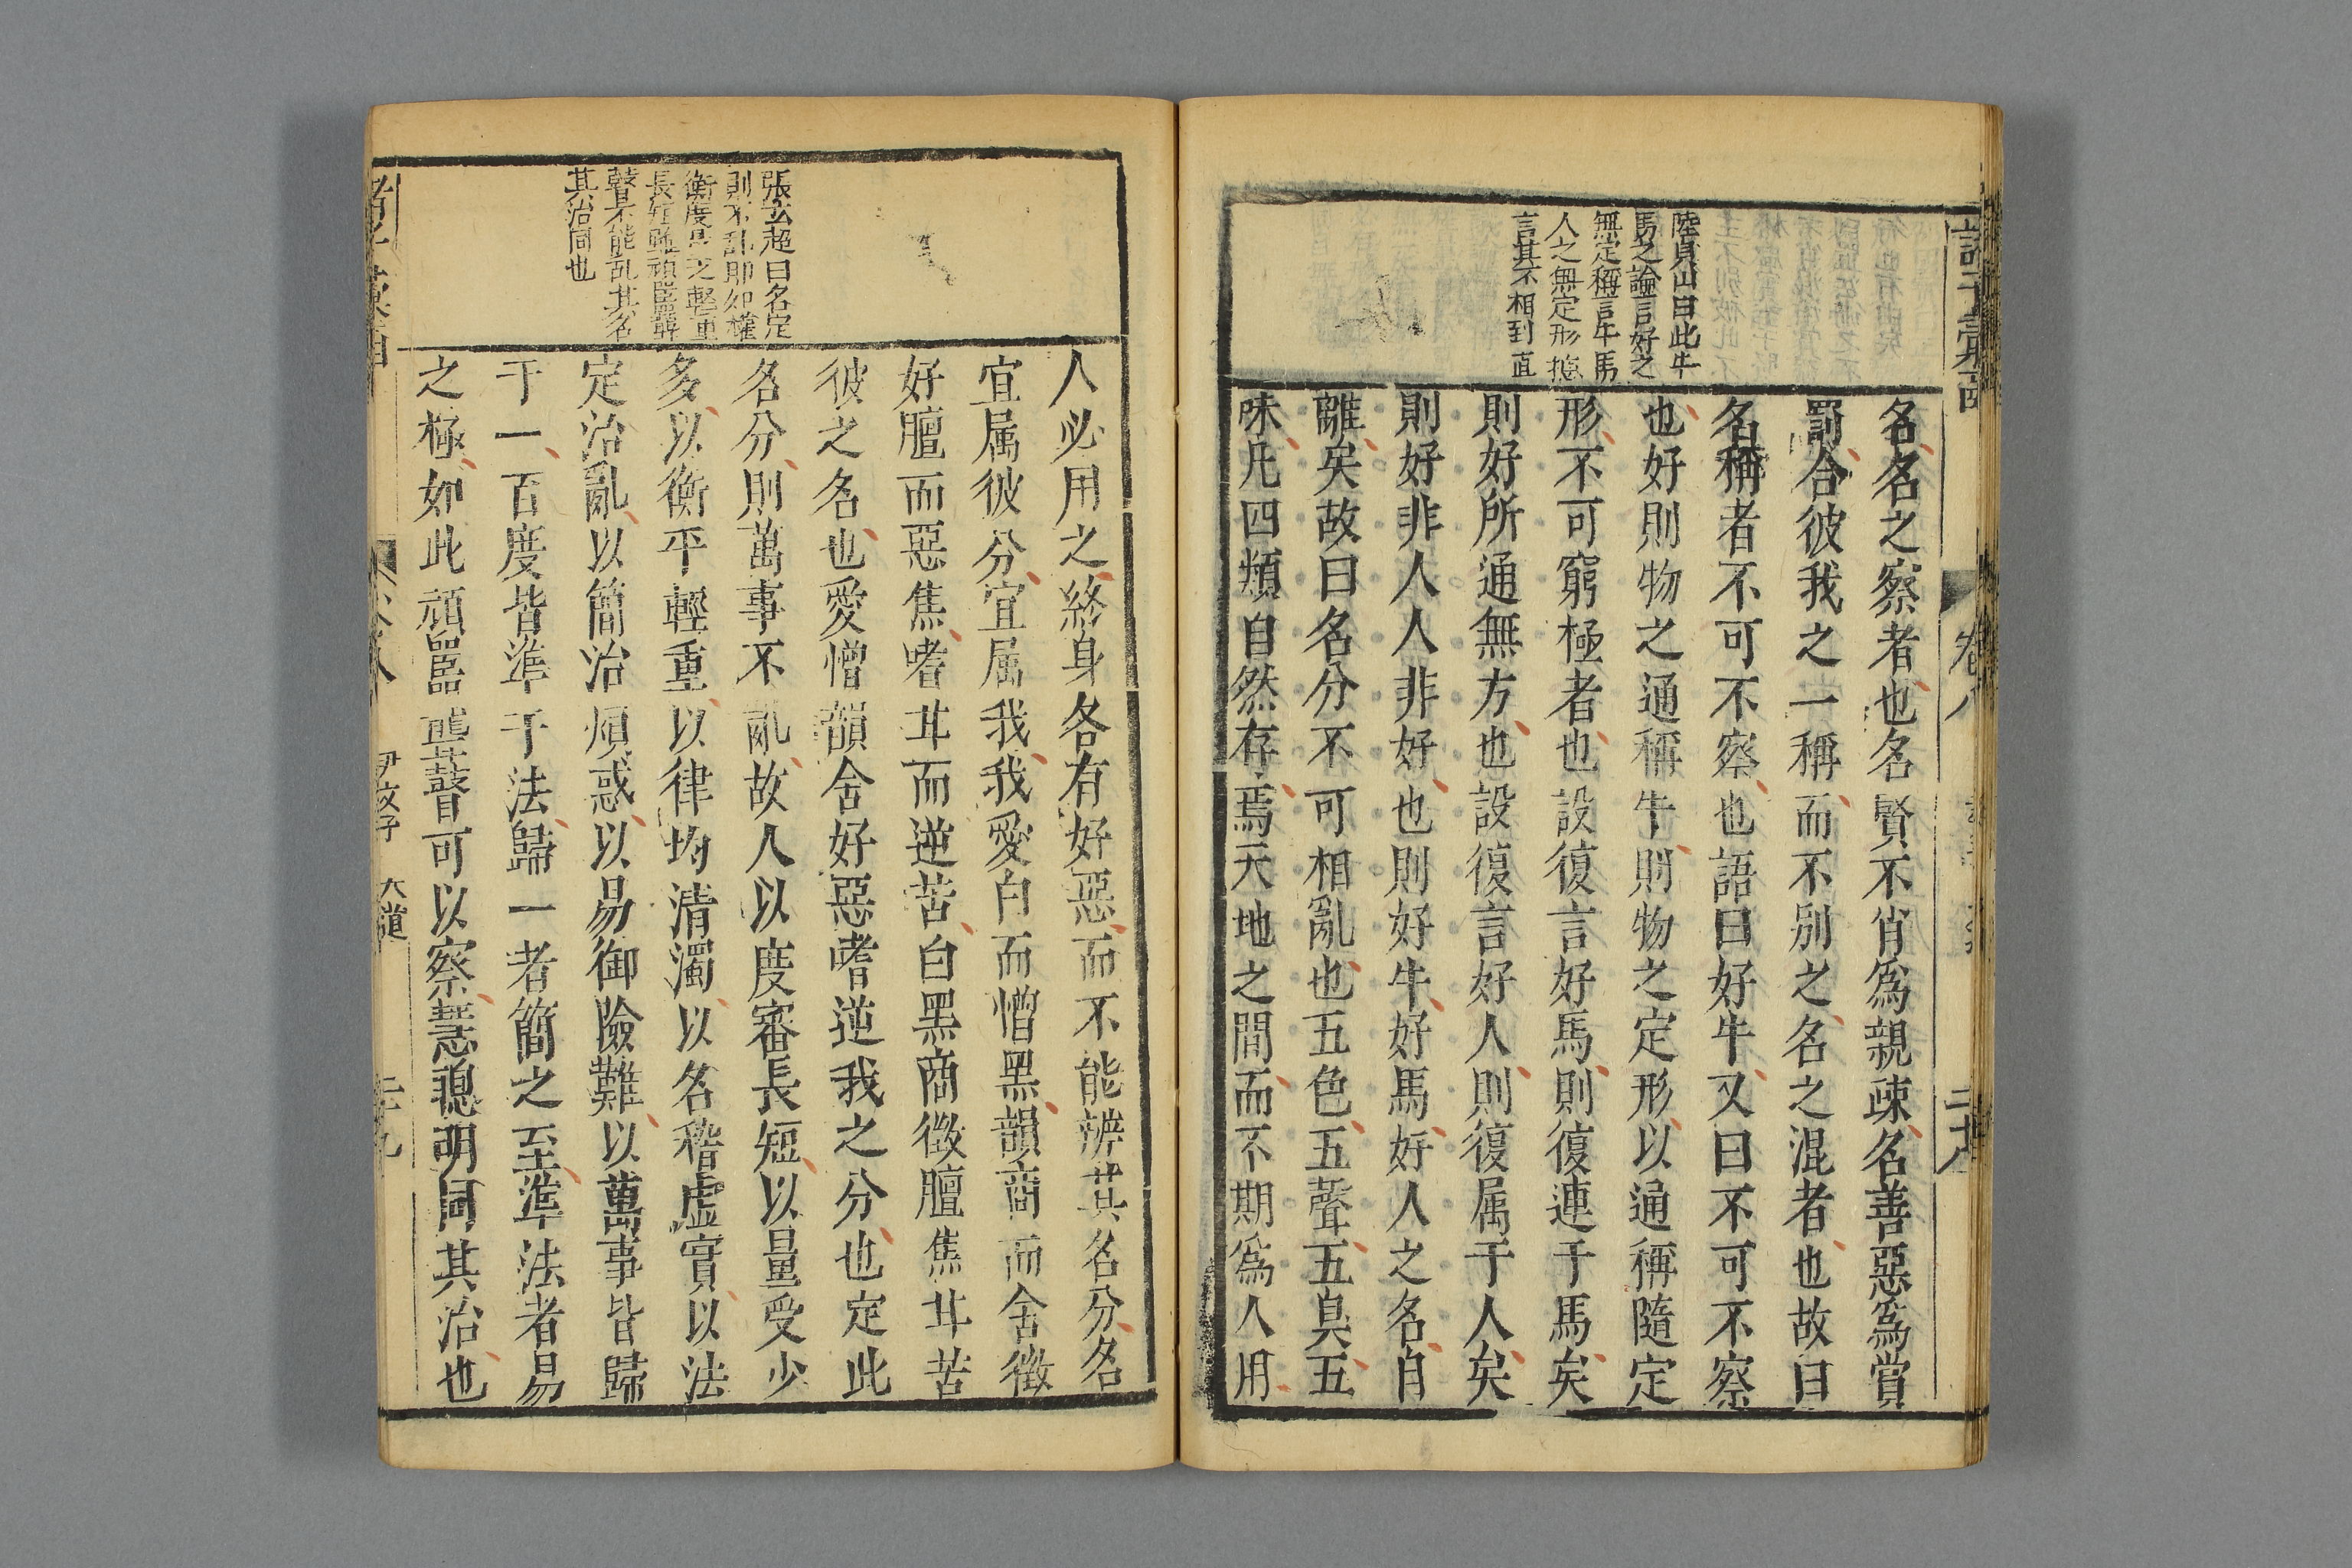 卷八
陸貞山曰此牛
馬之論言好之
無定稱言牛馬
人之無定形揔
言其不相到直
名名之察者也名賢不肖為親疎名善惡為賞
罰合彼我之一稱而不別之名之混者也故曰
名稱者不可不察也語曰好牛又曰不可不察
也好則物之通稱牛則物之定形以通稱隨定
形不可窮極者也設復言好馬則復連于馬矣
則好所通無方也設復言好人則復属于人矣
則好非人人非好也則好牛好馬好人之名自
離矣故曰名分不可相亂也五色五聲五臭五
味凡四類自然存焉天地之間而不期為人用
張玄超曰名定
則不亂即如權
衡度量之輕重
長短雖頑嚚聾
瞽不能乱其名
其治同也
人必用之終身各有好惡而不能辨其名分名
宜属彼分宜属我我愛白而憎黑韻商而舍徵
好膻而惡焦嗜甘而逆苦白黑商徵膻焦甘苦
彼之名也愛憎韻舍好惡嗜逆我之分也定此
名分則萬事不亂故人以度審長短以量受少
多以衡平輕重以律均清濁以名稽虛實以法
定治亂以簡治煩惑以易御險難以萬事皆歸
于一百度皆準于法歸一者簡之至準法者易
之極如此頑嚚聾瞽可以察慧聰明同其治也
尹文子
大道